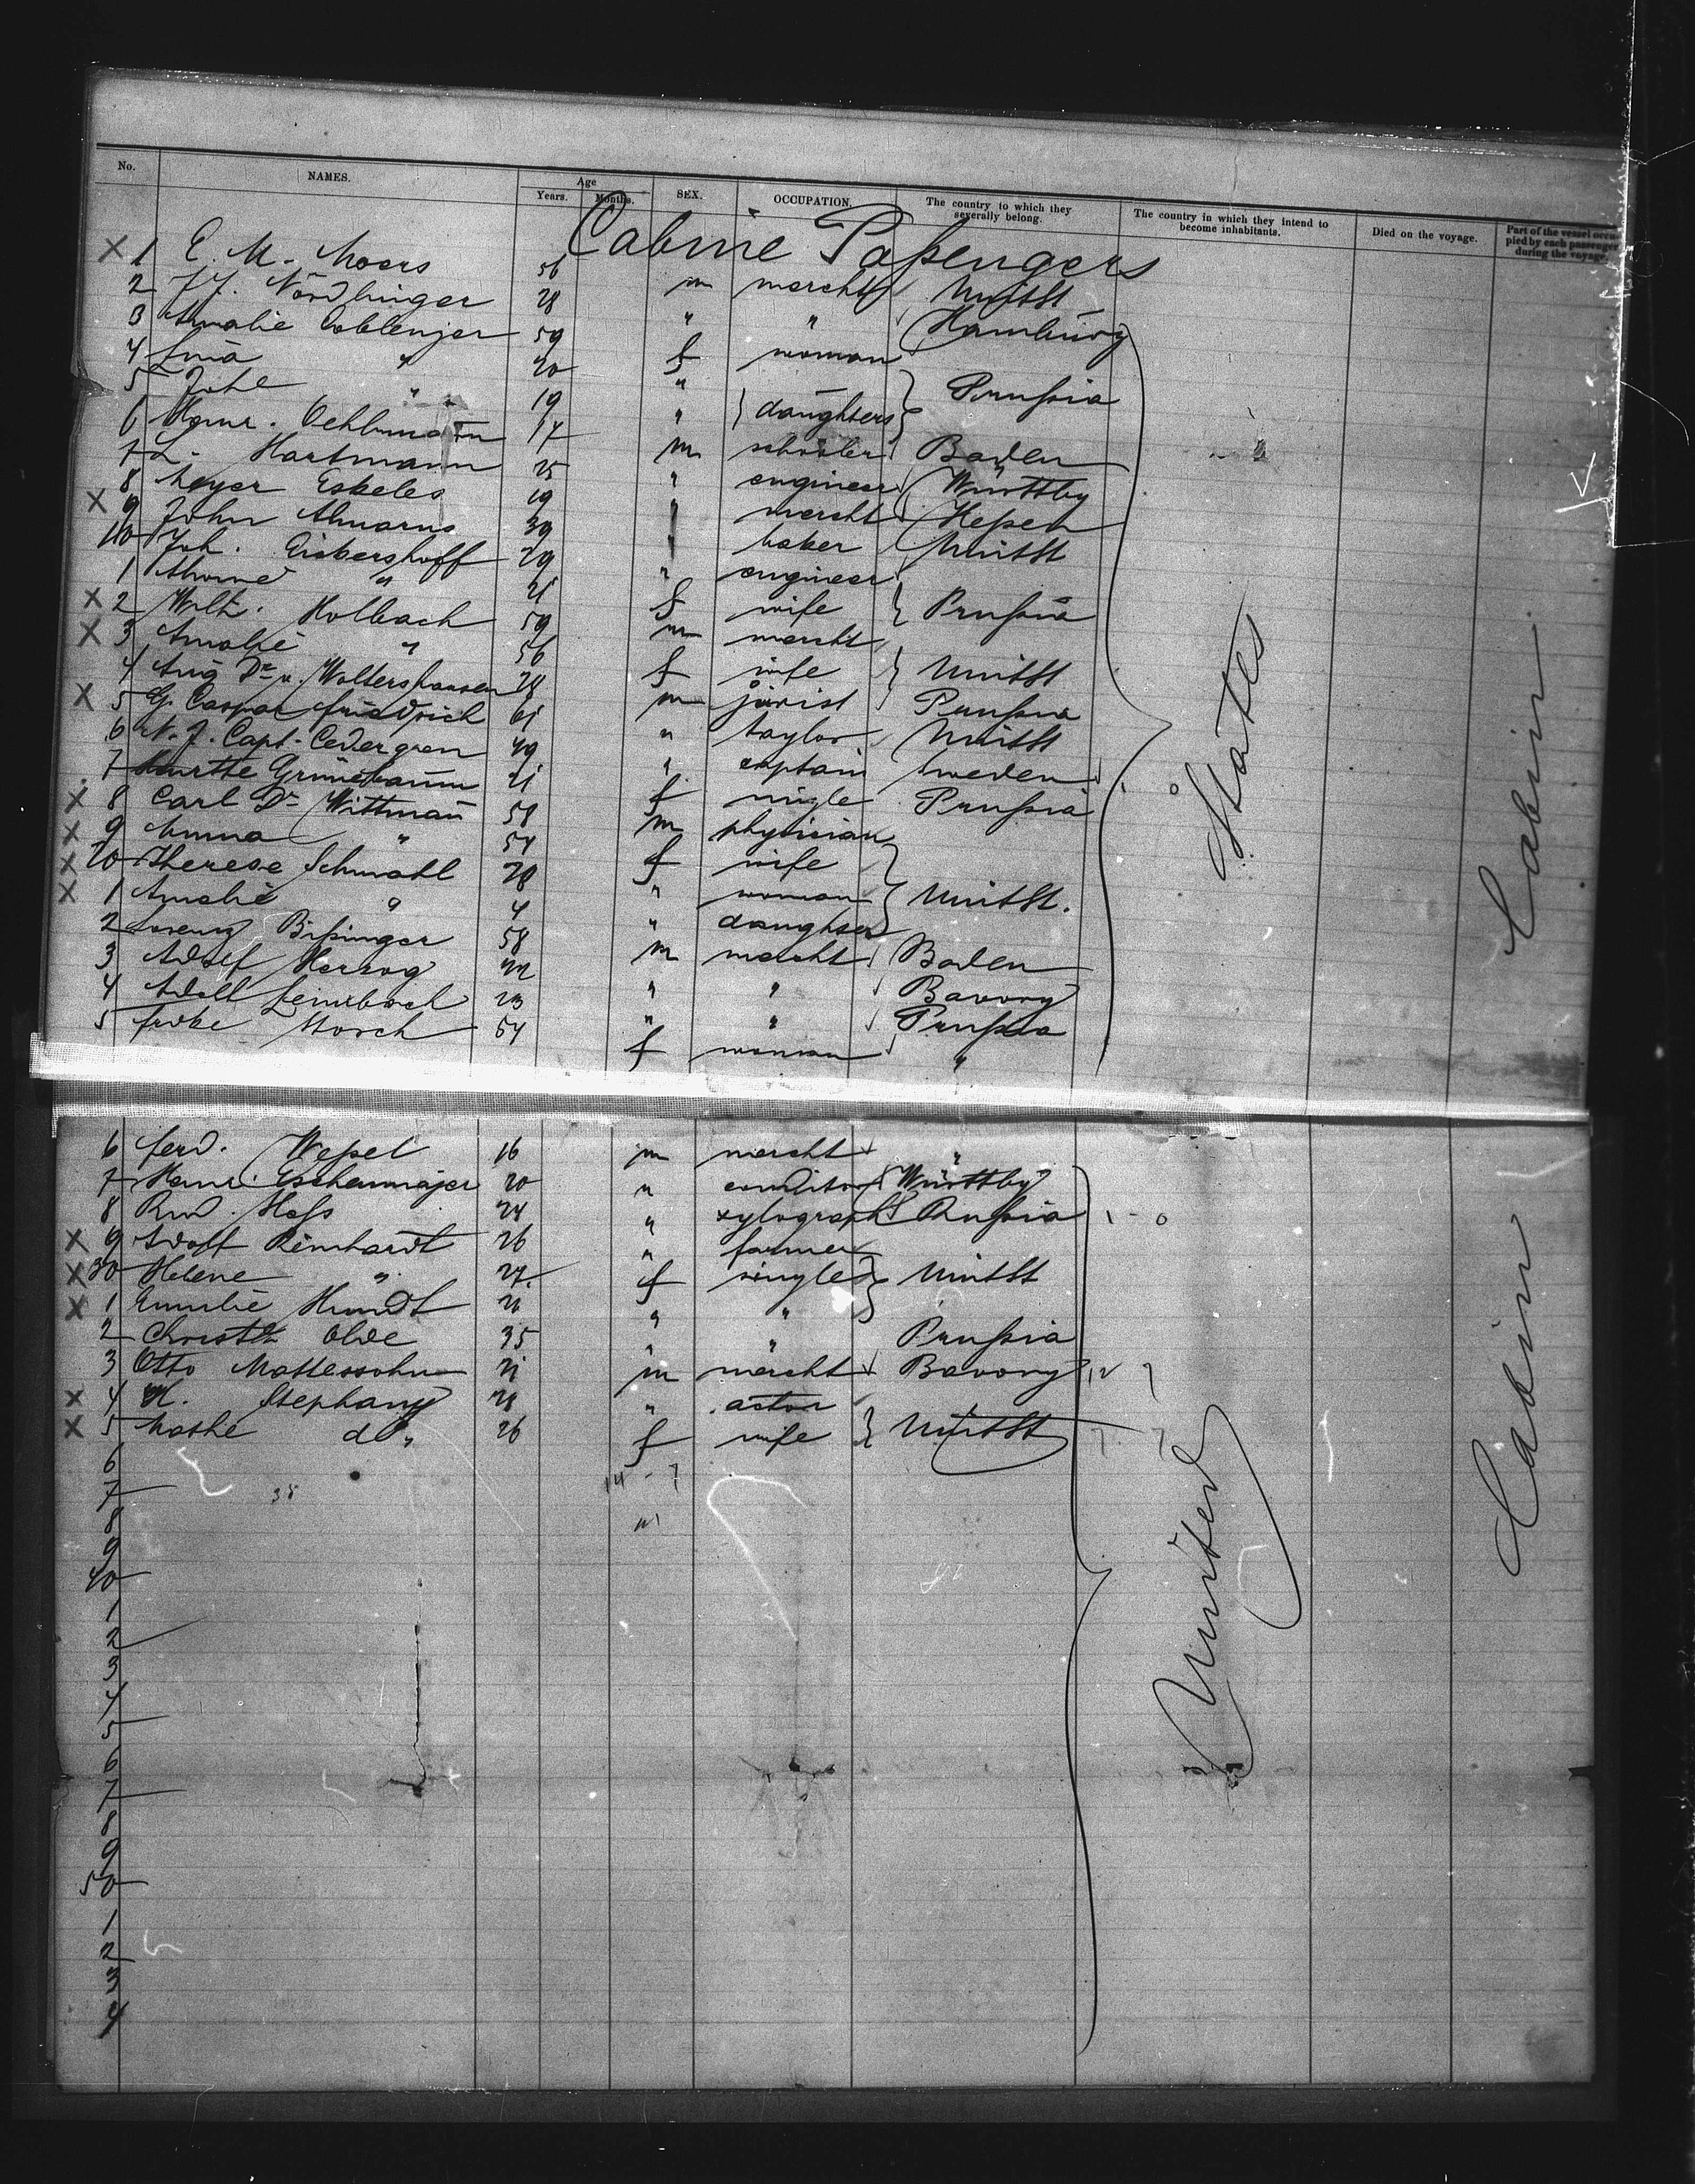 No. NAMES. Age SEX. OCCUPATION. The country to which they severally belong. The country in which they intend to become inhabitants. Died on the voyage. Part of the vessel occupied by each passenger during the voyage.
Years. Months.
Cabine Paßengers
X 1 E. M. Moers 56 m mercht Unit St
2 Nördlinger 28 " " Hamburg
3 Amalie Coblenzer 59 f woman
4 Lina " 20 "
5 " 19 " } daughters } Prußia
6 Oehlmann 17 m Baden
7 L. Hartmann 25 " engineer Württbg
8 Meyer Eskeles 19 mercht Heßen
X 9 John Ahrens 39 baker Unit St
10 Joh. 29 " engineer
1 " 21 f wife } Prußia
X 2 Wilh. Holbach 59 m mercht
X 3 Amalie " 56 f wife } Unit St
4 Aug Dr v. Woltershausen 28 m jurist Prußia
X 5 G. Caspar Friedrich 61 " taylor Unit St
6 Capt. Cedergren 49 " captain Sweden
7 Grünebaum 21 f single Prußia
X 8 Carl Dr Wittmañ 58 m physician
X 9 Emma " 54 f wife
X 20 Therese Schmahl 28 " woman } Unit St.
X 1 Amalie " 4 " daughter
2 Lorenz Bißinger 58 m mercht Baden
3 Adolf Herzog 22 " " Bavory
4 Adolf Leimbach 23 " " Prußia
5 Storch 54 f woman "
6 Ferd. Weßel 16 m mercht "
7 Eschenmajer 20 " conditor Württbg
8 Rud. Hoß 24 " xylograph Rußia
X 9 Adolf Reinhardt 26 " farmer
X 30 Helene " 27. f single } Unit St
X 1 Emilie Hundt 21 " "
2 Olde 35 " " Prußia
3 Otto Mattessohn 21 m mercht Bavory
X 4 H. Stephany 28 " actor
X 5 do " 26 f wife } Unit St
6
7 38
8
9
40
1
2
3
4
5
6
7
8
9
50
1
2
3
4
United States
Cabin
Cabin